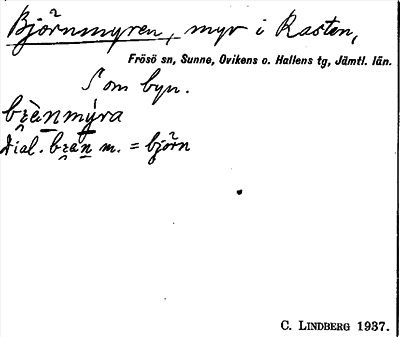 Björnmyren, myr i Rasten,
Frösö sn, Sunne, Ovikens o. Hallens tg, Jämtl. län.
S om byn.
bränmýra
Dial. brän m. = björn
C. LINDBERG 1937.